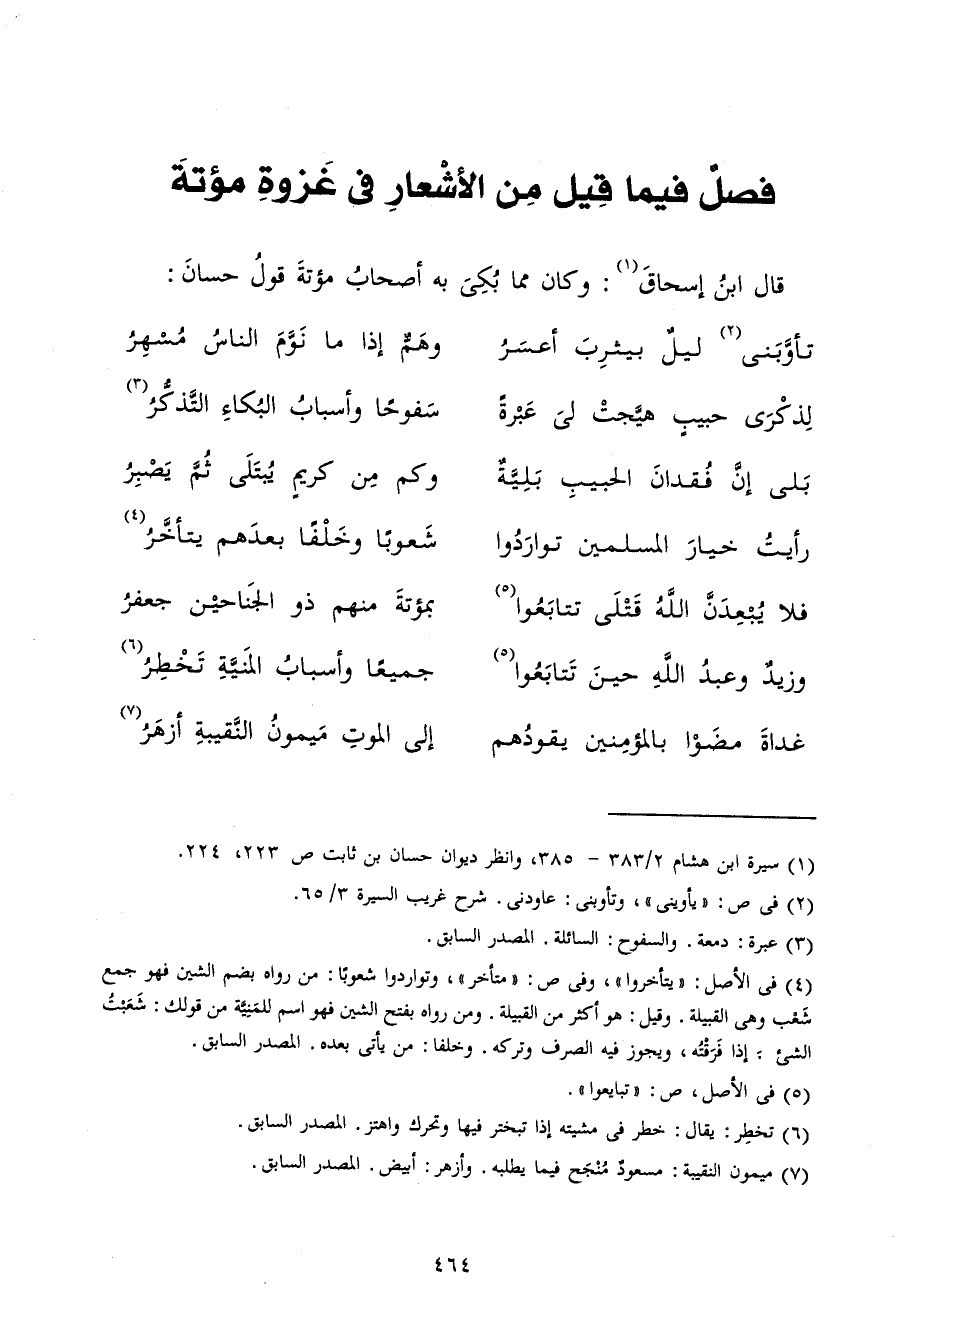 فصلٌ فيما قِيل مِن الأشْعارِ فى غَزوةِ مؤتةَ
قال ابنُ إسحاقَ(١) : وكان مما بُكِىَ به أصحابُ مؤتةَ قولُ حسانَ :
تأوَّبَنى(٢) ليلٌ بيثرِبَ أعسَرُ وهَمٌّ إذا ما نَوَّمَ الناسُ مُسْهِرُ
لِذكْرَى حبيبٍ هيَّجتْ لىَ عَبْرةً سَفوحًا وأسبابُ البُكاءِ التَّذكُّرُ(٣)
بَلى إنَّ فُقدانَ الحبيبِ بَلِيَّةٌ وكم مِن كريمٍ يُبْتَلَى ثُمَّ يَصْبِرُ
رأيتُ خيارَ المسلمين توارَدُوا شَعوبًا وخَلْفًا بعدَهم يتأخَّرُ(٤)
فلا يُبْعِدَنَّ اللَّهُ قَتْلَى تتابَعُوا(٥) بمؤتةَ منهم ذو الجَناحيْن جعفرُ
وزيدٌ وعبدُ اللَّهِ حينَ تَتابَعُوا(٥) جميعًا وأسبابُ المَنيَّةِ تَخْطِرُ(٦)
غداةَ مضَوْا بالمؤمنين يقودُهم إلى الموتِ مَيمونُ النَّقيبةِ أزهَرُ(٧)
(١) سيرة ابن هشام ٣٨٣/٢ – ٣٨٥، وانظر ديوان حسان بن ثابت ص ٢٢٣، ٢٢٤.
(٢) فى ص : « يأوينى » ، وتأوبنى : عاودنى . شرح غريب السيرة ٣/ ٦٥.
(٣) عبرة : دمعة . والسفوح : السائلة . المصدر السابق .
(٤) فى الأصل : « يتأخروا » ، وفى ص : « متأخر » ، وتواردوا شعوبًا : من رواه بضم الشين فهو جمع
شَعْب وهى القبيلة . وقيل : هو أكثر من القبيلة . ومن رواه بفتح الشين فهو اسم للمَنِيَّة من قولك : شَعَبْتُ
الشئ : إذا فَرَقْتُه ، ويجوز فيه الصرف وتركه . وخلفا : من يأتى بعده . المصدر السابق .
(٥) فى الأصل ، ص : « تبايعوا » .
(٦) تخطِر : يقال : خطر فى مشيته إذا تبختر فيها وتحرك واهتز . المصدر السابق .
(٧) ميمون النقيبة : مسعودٌ مُنْجَح فيما يطلبه . وأزهر : أبيض . المصدر السابق .
٤٦٤